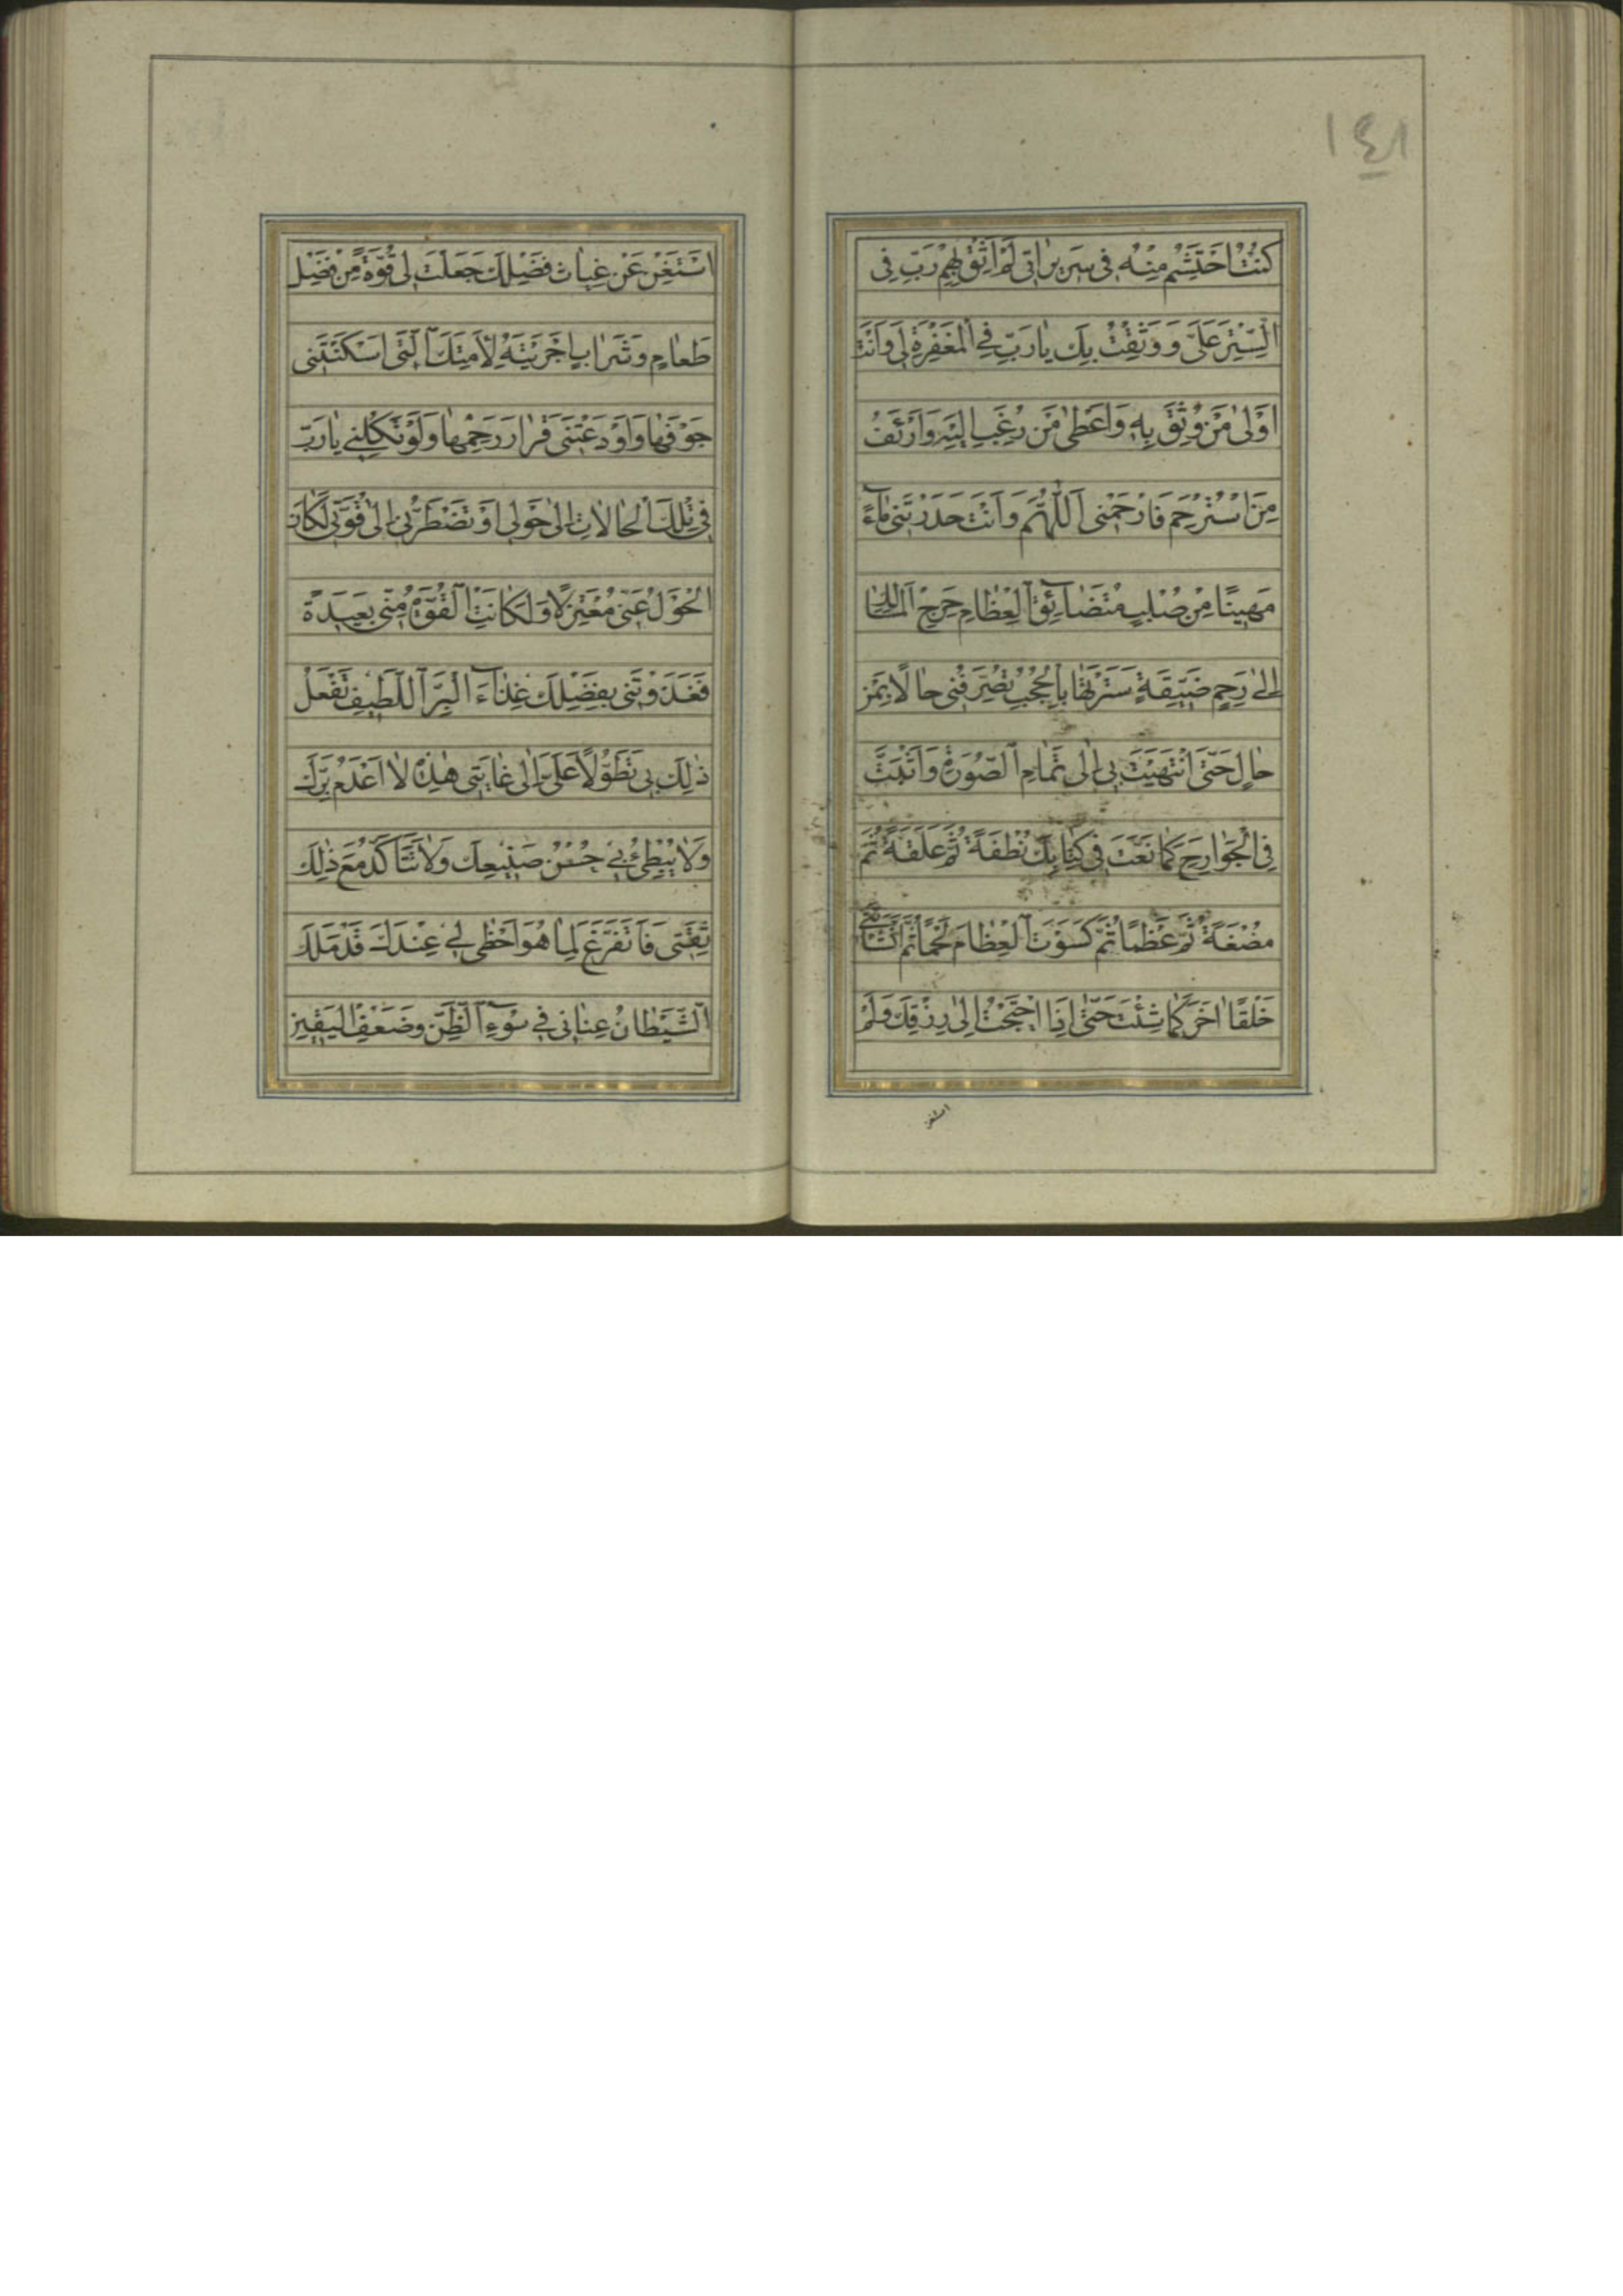 ١٤١
كُنْتُ اَحْتَشِمُ مِنْهُ فِى سَرِيرَاتِى لَمْ اَثِقْ بِهِمْ رَبِّ فِى
السِّتْرِ عَلَىَّ وَ وَثِقْتُ بِكَ يَا رَبِّ فِى الْمَغْفِرَةِ لِى وَاَنْتَ
اَوْلٰى مَنْ وُثِقَ بِهِ وَاَعْطٰى مَنْ رُغِبَ اِلَيْهِ وَاَرْئَفُ
مَنِ اسْتُرْحِمَ فَارْحَمْنِى اَللّٰهُمَّ وَاَنْتَ حَدَرْتَنِى مَاءً
مَهِينًا مِنْ صُلْبٍ مُتَضَائِقِ الْعِظَامِ حَرِجِ الْمَسَالِكِ
اِلٰى رَحِمٍ ضَيِّقَةٍ سَتَرْتَهَا بِالْحُجُبِ تُصَرِّفُنِى حَالًا عَنْ
حَالٍ حَتّٰى انْتَهَيْتَ بِى اِلٰى تَمَامِ الصُّورَةِ وَاَثْبَتَّ
فِىَّ الْجَوَارِحَ كَمَا نَعَتَّ فِى كِتَابِكَ نُطْفَةً ثُمَّ عَلَقَةً ثُمَّ
مُضْغَةً ثُمَّ عَظْمًا ثُمَّ كَسَوْتَ الْعِظَامَ لَحْمًا ثُمَّ اَنْشَأْتَنِى
خَلْقًا اٰخَرَ كَمَا شِئْتَ حَتّٰى اِذَا احْتَجْتُ اِلٰى رِزْقِكَ وَلَمْ
استغن
اَسْتَغْنِ عَنْ غِيَاثِ فَضْلِكَ جَعَلْتَ لِى قُوَّةً مِنْ فَضْلِ
طَعَامٍ وَشَرَابٍ اَجْرَيْتَهُ لِاَمَتِكَ الَّتِى اَسْكَنْتَنِى
جَوْفَهَا وَاَوْدَعْتَنِى قَرَارَ رَحِمِهَا وَلَوْ تَكِلْنِى يَا رَبِّ
فِى تِلْكَ الْحَالَاتِ اِلٰى حَوْلِى اَوْ تَضْطَرُّنِى اِلٰى قُوَّتِى لَكَانَ
الْحَوْلُ عَنِّى مُعْتَزِلًا وَلَكَانَتِ الْقُوَّةُ مِنِّى بَعِيدَةً
فَغَذَوْتَنِى بِفَضْلِكَ غِذَاءَ الْبَرِّ اللَّطِيفِ تَفْعَلُ
ذٰلِكَ بِى تَطَوُّلًا عَلَىَّ اِلٰى غَايَتِى هٰذِهِ لَا اَعْدَمُ بِرَّكَ
وَلَا يُبْطِئُ بِى حُسْنُ صَنِيعِكَ وَلَا تَتَأَكَّدُ مَعَ ذٰلِكَ
ثِقَتِى فَاَتَفَرَّغَ لِمَا هُوَ اَحْظٰى لِى عِنْدَكَ قَدْ مَلَكَ
الشَّيْطَانُ عِنَانِى فِى سُوءِ الظَّنِّ وَضَعْفِ الْيَقِينِ